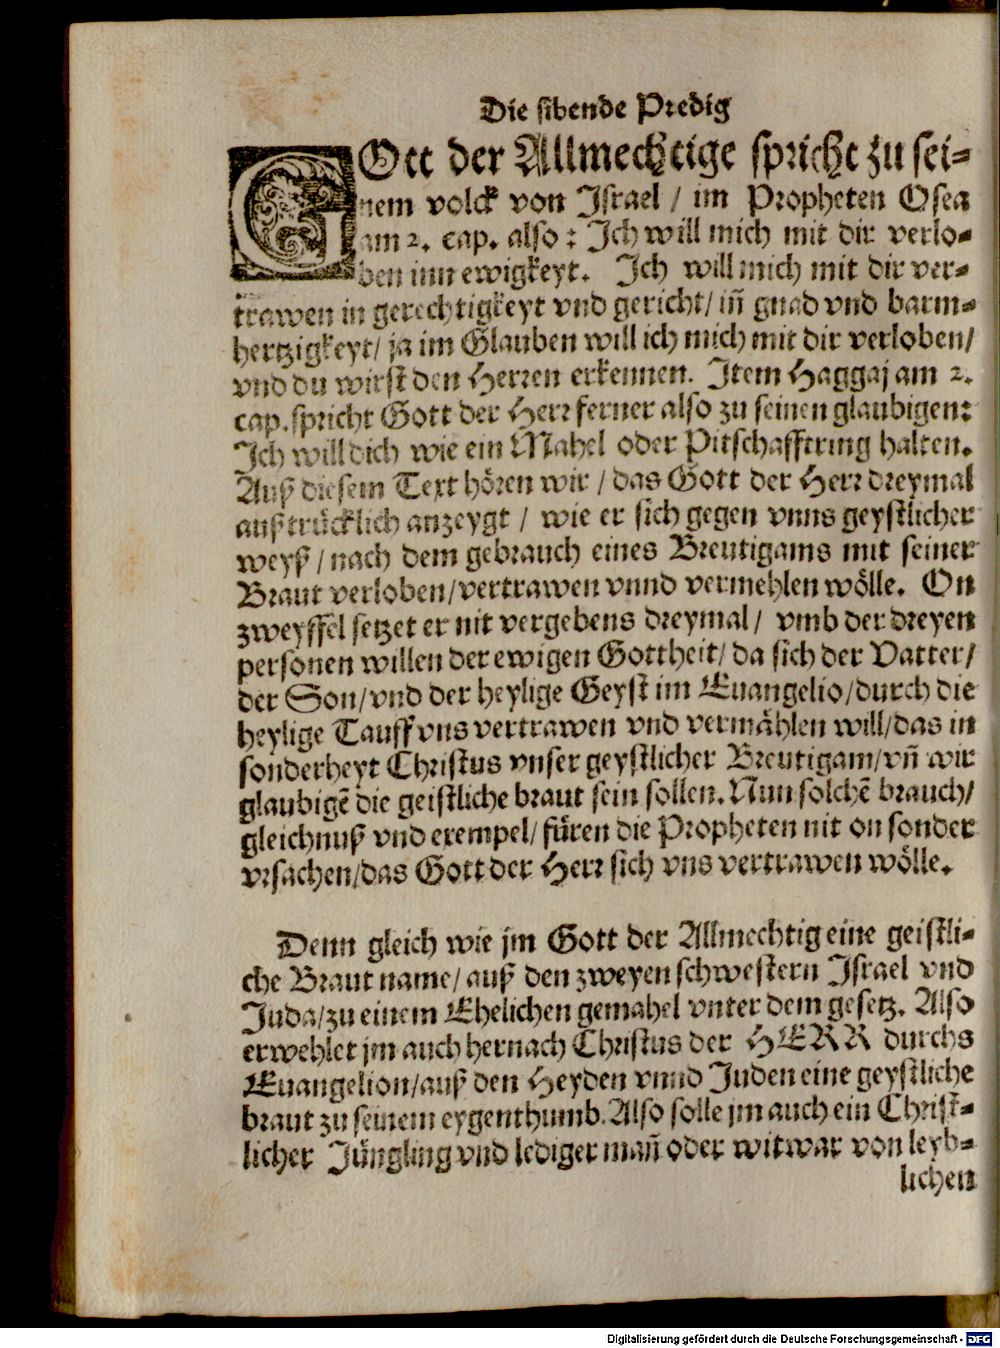 Die sibende Predig
GOtt der Allmechtige spricht zu sei-
nem volck von Israel / im Propheten Osea
am 2. cap. also : Ich will mich mit dir verlo-
ben inn ewigkeyt. Ich will mich mit dir ver-
trawen in gerechtigkeyt vnd gericht/ in̄ gnad vnd barm-
hertzigkeyt/ ja im Glauben will ich mich mit dir verloben/
vnd du wirst den Herren erkennen. Item Haggaj am 2.
cap. spricht Gott der Herr ferner also zu seinen glaubigen:
Ich will dich wie ein Mahel oder Pitschafftring halten.
Auß diesem Text hören wir / das Gott der Herr dreymal
außtrücklich anzeygt / wie er sich gegen vnns geystlicher
weyß / nach dem gebrauch eines Breutigams mit seiner
Braut verloben/vertrawen vnnd vermehlen wölle. On
zweyffel setzet er nit vergebens dreymal/ vmb der dreyen
personen willen der ewigen Gottheit/ da sich der Vatter/
der Son/vnd der heylige Geyst im Euangelio/durch die
heylige Tauff vns vertrawen vnd vermählen will/das in
sonderheyt Christus vnser geystlicher Breutigam/vn̄ wir
glaubigē die geistliche braut sein sollen. Nun solchē brauch/
gleichnuß vnd exempel/ füren die Propheten nit on sonder
vrsachen/das Gott der Herr sich vns vertrawen wölle.
Denn gleich wie jm Gott der Allmechtig eine geistli-
che Braut name/ auß den zweyen schwestern Israel vnd
Juda/zu einem Ehelichen gemahel vnter dem gesetz. Also
erwehlet jm auch hernach Christus der HERR durchs
Euangelion/auß den Heyden vnnd Juden eine geystliche
braut zu seinem eygenthumb. Also solle jm auch ein Christ-
licher Jüngling vnd lediger man̄ oder witwar von leyb-
lichen
Digitalisierung gefördert durch die Deutsche Forschungsgemeinschaft - DFG